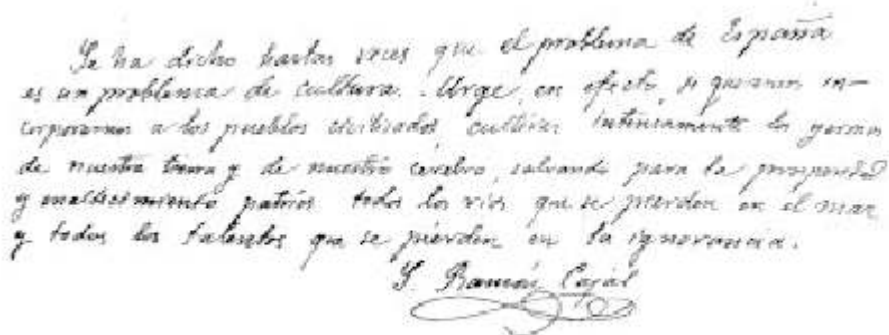 Se ha dicho hartas veces que el problema de España
es un problema de cultura. Urge, en efecto, si queremos in-
corporarnos a los pueblos civilizados, cultivar intensamente los yermos
de nuestra tierra y de nuestro cerebro, salvando para la prosperidad
y enaltecimiento patrios todos los ríos que se pierden en el mar
y todos los talentos que se pierden en la ignorancia.
S. Ramón Cajal